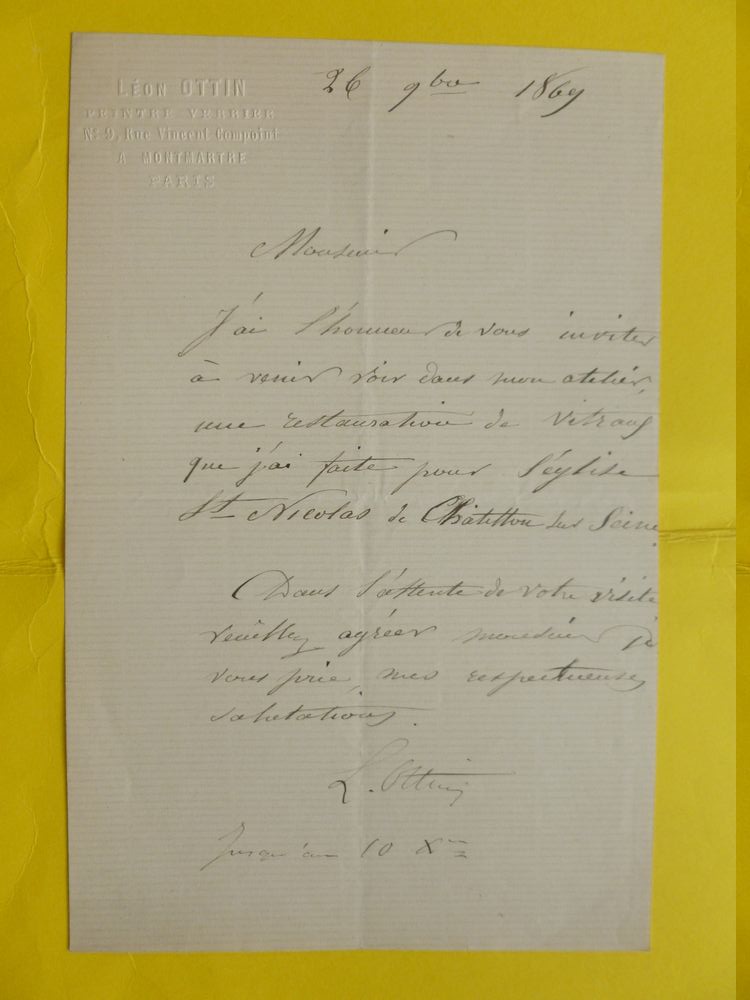 LÉON OTTIN
PEINTRE VERRIER
No 9, Rue Vincent Compoint
A MONTMARTRE
PARIS
26 9bre 1869
Monsieur
J'ai l'honneur de vous inviter
à venir voir dans mon atelier,
une restauration de vitraux
que j'ai faite pour l'église
St Nicolas de Châtillon sur Seine.
Dans l'attente de votre visite
veuillez agréer monsieur je
vous prie, mes respectueuses
salutations.
L. Ottin
Jusqu'au 10 Xbre